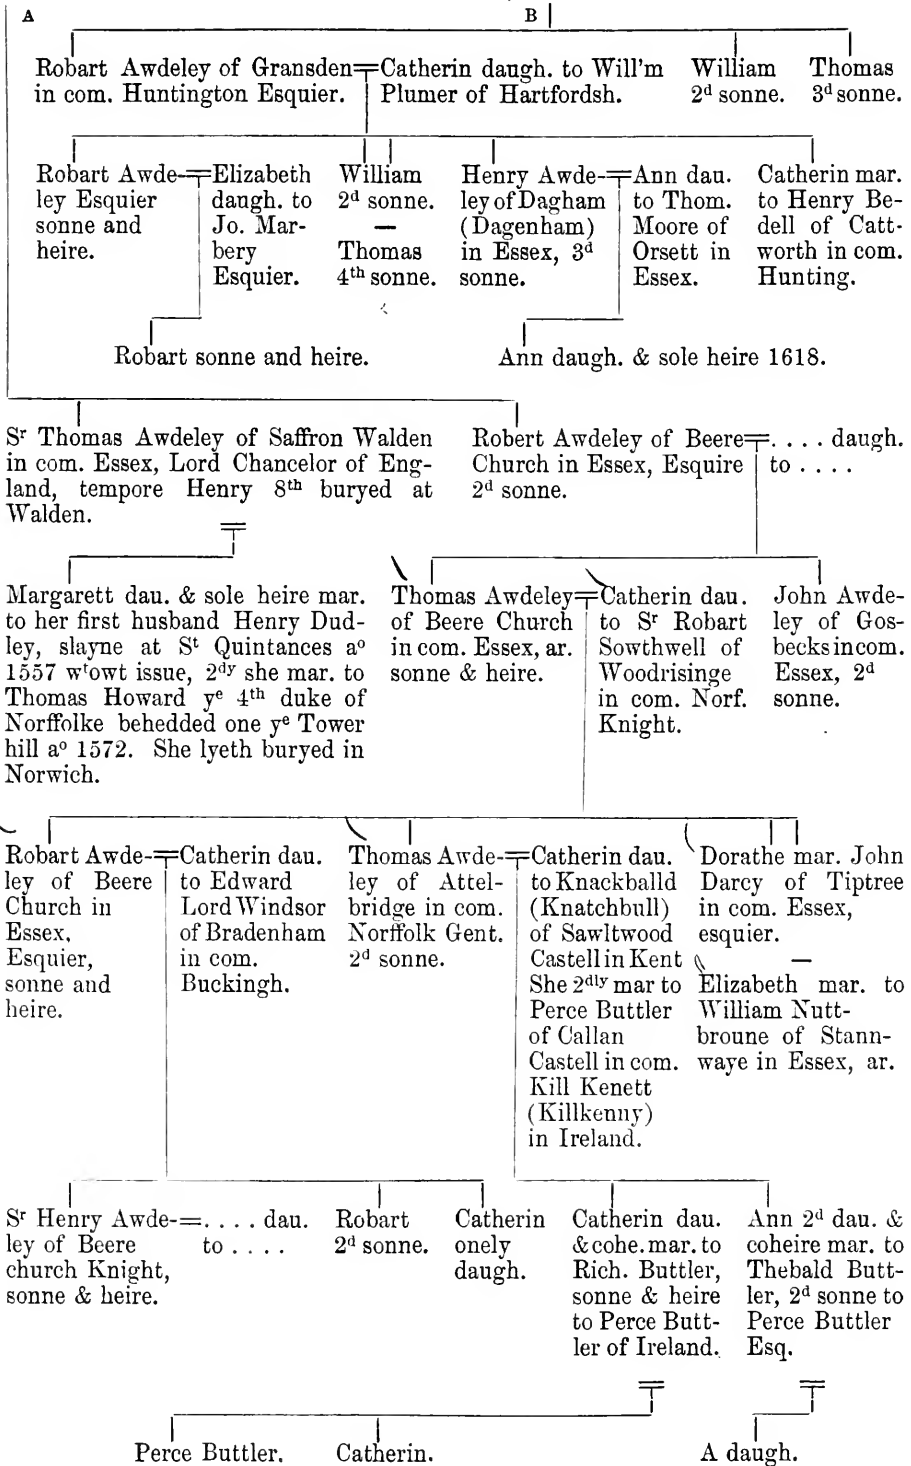 A
B
Robart Awdeley of Gransden
in com. Huntington Esquier.
Catherin daugh. to Will'm
Plumer of Hartfordsh.
William
2d sonne.
Thomas
3d sonne.
Robart Awde-
ley Esquier
sonne and
heire.
Elizabeth
daugh. to
Jo. Mar-
bery
Esquier.
William
2d sonne.
—
Thomas
4th sonne.
Henry Awde-
ley of Dagham
(Dagenham)
in Essex, 3d
sonne.
Ann dau.
to Thom.
Moore of
Orsett in
Essex.
Catherin mar.
to Henry Be-
dell of Catt-
worth in com.
Hunting.
Robart sonne and heire.
Ann daugh. & sole heire 1618.
Sr Thomas Awdeley of Saffron Walden
in com. Essex, Lord Chancelor of Eng-
land, tempore Henry 8th buryed at
Walden.
Robert Awdeley of Beere
Church in Essex, Esquire
2d sonne.
. . . . daugh.
to . . . .
Margarett dau. & sole heire mar.
to her first husband Henry Dud-
ley, slayne at St Quintances ao
1557 wtowt issue, 2dy she mar. to
Thomas Howard ye 4th duke of
Norffolke behedded one ye Tower
hill ao 1572. She lyeth buryed in
Norwich.
Thomas Awdeley
of Beere Church
in com. Essex, ar.
sonne & heire.
Catherin dau.
to Sr Robart
Sowthwell of
Woodrisinge
in com. Norf.
Knight.
John Awde-
ley of Gos-
becks in com.
Essex, 2d
sonne.
Robart Awde-
ley of Beere
Church in
Essex.
Esquier,
sonne and
heire.
Catherin dau.
to Edward
Lord Windsor
of Bradenham
in com.
Buckingh.
Thomas Awde-
ley of Attel-
bridge in com.
Norffolk Gent.
2d sonne.
Catherin dau.
to Knackballd
(Knatchbull)
of Sawltwood
Castell in Kent
She 2dly mar to
Perce Buttler
of Callan
Castell in com.
Kill Kenett
(Killkenny)
in Ireland.
Dorathe mar. John
Darcy of Tiptree
in com. Essex,
esquier.
—
Elizabeth mar. to
William Nutt-
broune of Stann-
waye in Essex, ar.
Sr Henry Awde-
ley of Beere
church Knight,
sonne & heire.
. . . . dau.
to . . . .
Robart
2d sonne.
Catherin
onely
daugh.
Catherin dau.
& cohe. mar. to
Rich. Buttler,
sonne & heire
to Perce Butt-
ler of Ireland.
Ann 2d dau. &
coheire mar. to
Thebald Butt-
ler, 2d sonne to
Perce Buttler
Esq.
Perce Buttler.
Catherin.
A daugh.